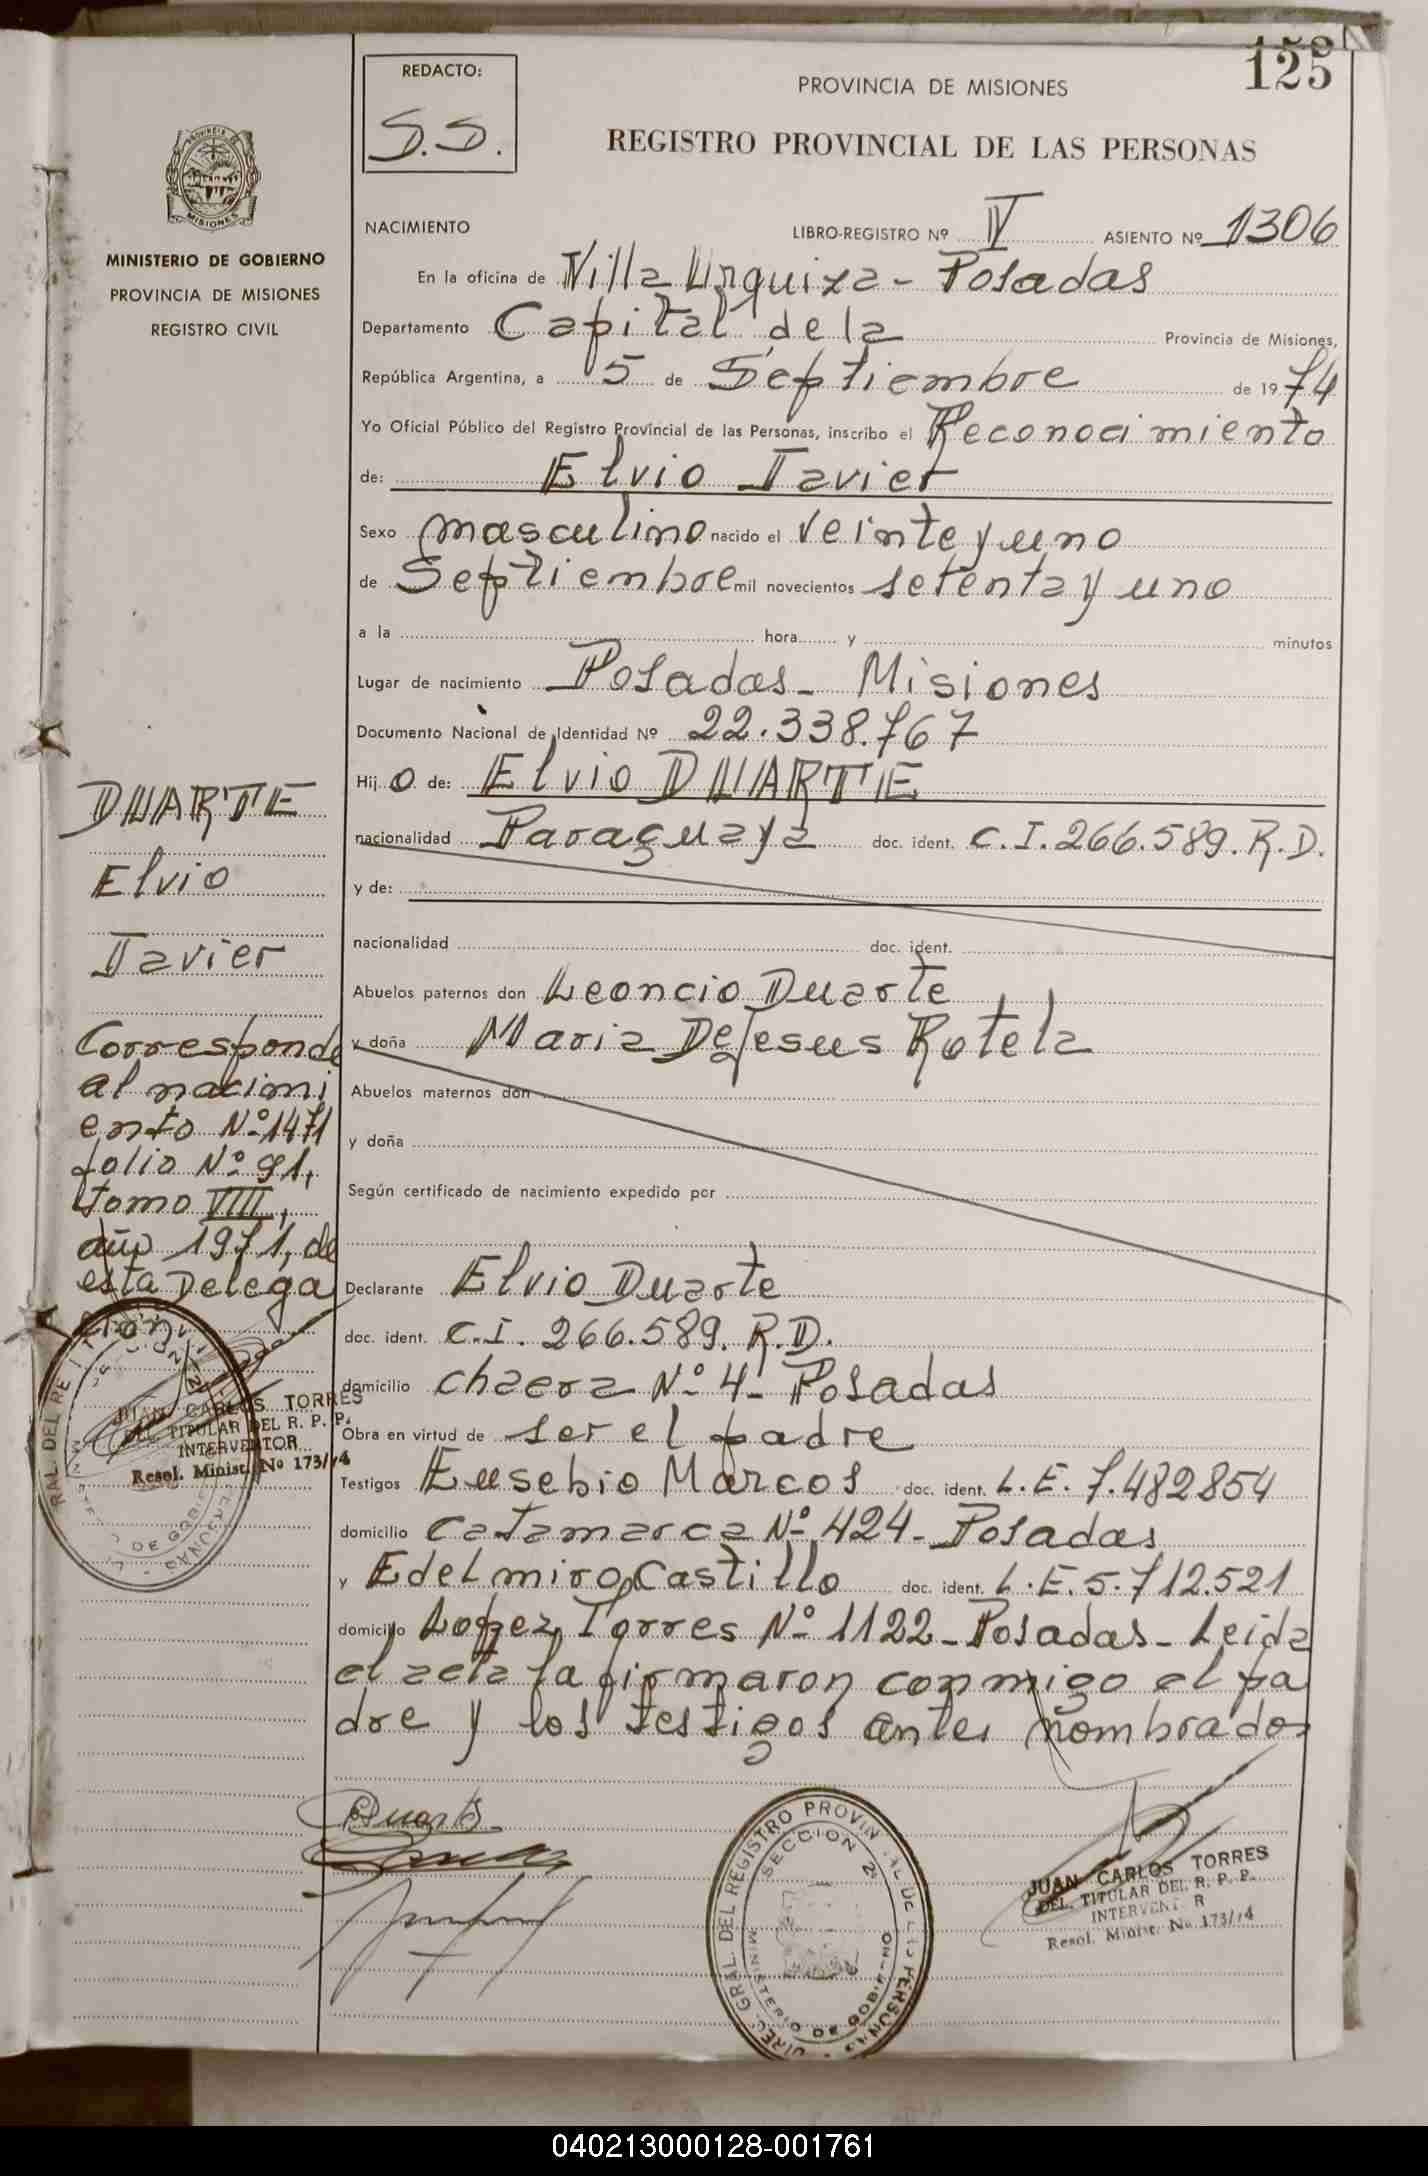 125
REDACTO:
S.S.
PROVINCIA DE MISIONES
REGISTRO PROVINCIAL DE LAS PERSONAS
MISIONES
MINISTERIO DE GOBIERNO
PROVINCIA DE MISIONES
REGISTRO CIVIL
NACIMIENTO LIBRO-REGISTRO Nº IV ASIENTO Nº 1306
En la oficina de Villa Urquiza - Posadas
Departamento Capital de la Provincia de Misiones,
República Argentina, a 5 de Septiembre de 1974
Yo Oficial Público del Registro Provincial de las Personas, inscribo el Reconocimiento
de: Elvio Javier
Sexo masculino nacido el veinte y uno
de Septiembre mil novecientos setenta y uno
a la hora y minutos
Lugar de nacimiento Posadas - Misiones
Documento Nacional de Identidad Nº 22.338.767
Hijo de: Elvio DUARTE
nacionalidad Paraguaya doc. ident. C.I. 266.589. R.D.
y de:
nacionalidad doc. ident.
Abuelos paternos don Leoncio Duarte
y doña Maria De Jesus Rotela
Abuelos maternos don
y doña
Según certificado de nacimiento expedido por
Declarante Elvio Duarte
doc. ident. C.I. 266.589. R.D.
domicilio chacra Nº 4 - Posadas
Obra en virtud de ser el padre
Testigos Eusebio Marcos doc. ident. L.E. 7.482854
domicilio Catamarca Nº 424 - Posadas
y Edelmiro Castillo doc. ident. L.E. 5.712.521
domicilio Lopez Torres Nº 1122 - Posadas - Leida
el acta la firmaron conmigo el pa
dre y los testigos antes nombrados
DUARTE
Elvio
Javier
Corresponde
al nacimi
ento Nº 1471
folio Nº 91,
tomo VIII,
año 1971, de
esta Delega
ción
JUAN CARLOS TORRES
DEL. TITULAR DEL R. P. P.
INTERVENTOR
Resol. Minist. No 173/74
Duarte
DIREC. GRAL. DEL REGISTRO PROVINCIAL DE LAS PERSONAS
SECCION 2ª
MINISTERIO DE GOBIERNO
JUAN CARLOS TORRES
DEL. TITULAR DEL R. P. P.
INTERVENT R
Resol. Minist. No 173/74
040213000128-001761